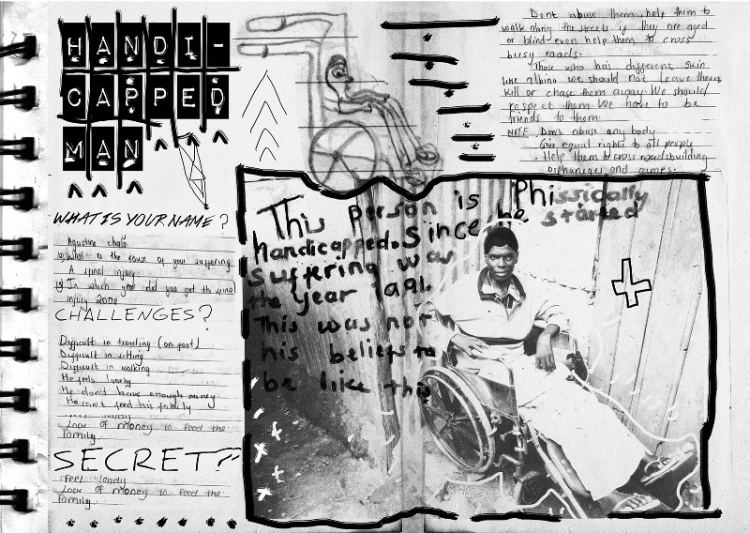 HANDI-
CAPPED
MAN
WHAT IS YOUR NAME?
Agustine
What is the cause of your suffering
A spinal injury
In which year did you get the spinal
injury
CHALLENGES?
Difficult in traveling (on foot)
Difficult in sitting
Difficult in walking
He feels lonely
He don't have enough money
He can't feed his family
Lack of money to feed the
family.
SECRET?
Feel lonely
Lack of money to feed the
family.
Dont abuse them, help them to
walk along the streets if they are aged
or blind even help them to cross
busy roads.
Those who has different skin
like albino we should not leave them
kill or chase them away. We should
respect them. We have to be
friends to them.
NOTE Don't abuse any body
Give equal rights to all people
Help them to cross roads, building
orphanages and
This person is Phissically
handicapped. Since he started
suffering was
the year 1991.
This was not
his beliefs to
be like this